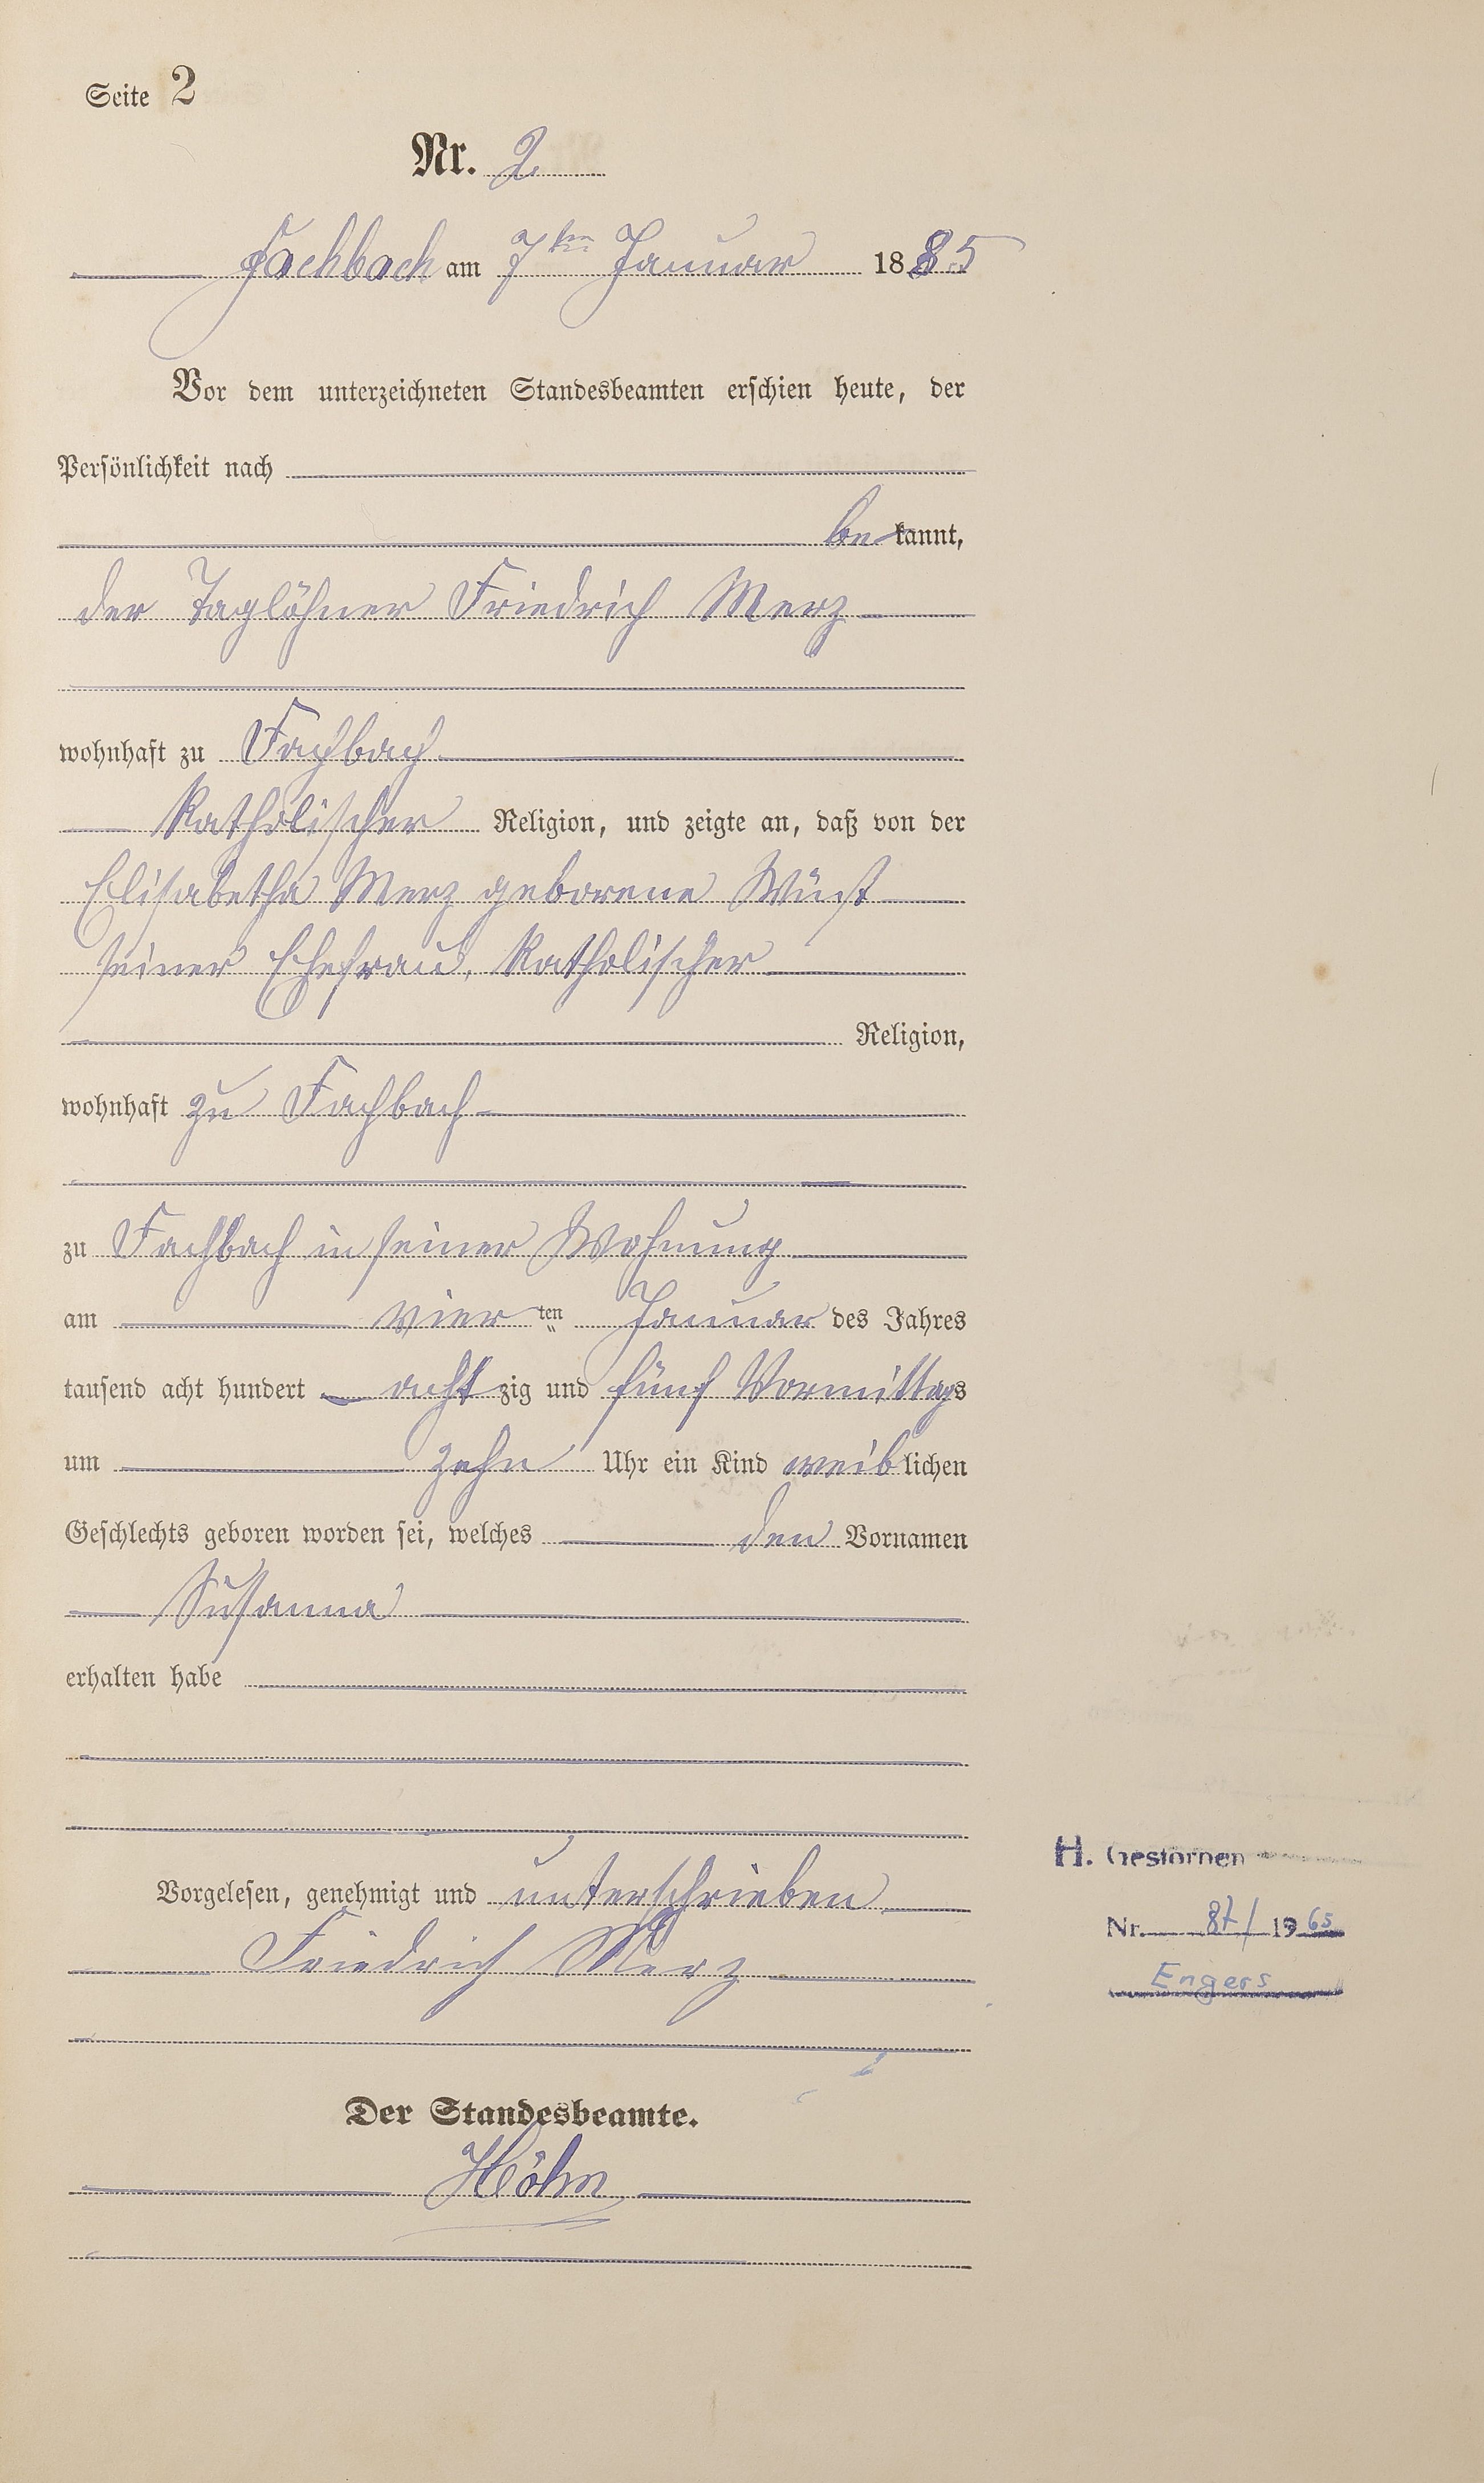 Seite 2
Nr. 2.
Fachbach am 7ten Januar 1885
Vor dem unterzeichneten Standesbeamten erschien heute, der
Persönlichkeit nach
bekannt,
der Taglöhner Friedrich Merz
wohnhaft zu Fachbach
Katholischer Religion, und zeigte an, daß von der
Elisabetha Merz geborene Wüst
seiner Ehefrau, Katholischer
Religion,
wohnhaft zu Fachbach
zu Fachbach in seiner Wohnung
am vier ten Januar des Jahres
tausend acht hundert acht zig und fünf Vormittags
um zehn Uhr ein Kind weiblichen
Geschlechts geboren worden sei, welches den Vornamen
Susanna
erhalten habe
Vorgelesen, genehmigt und unterschrieben
Friedrich Merz
Der Standesbeamte.
Höhn
H. Gestorben
Nr. 87/1965
Engers